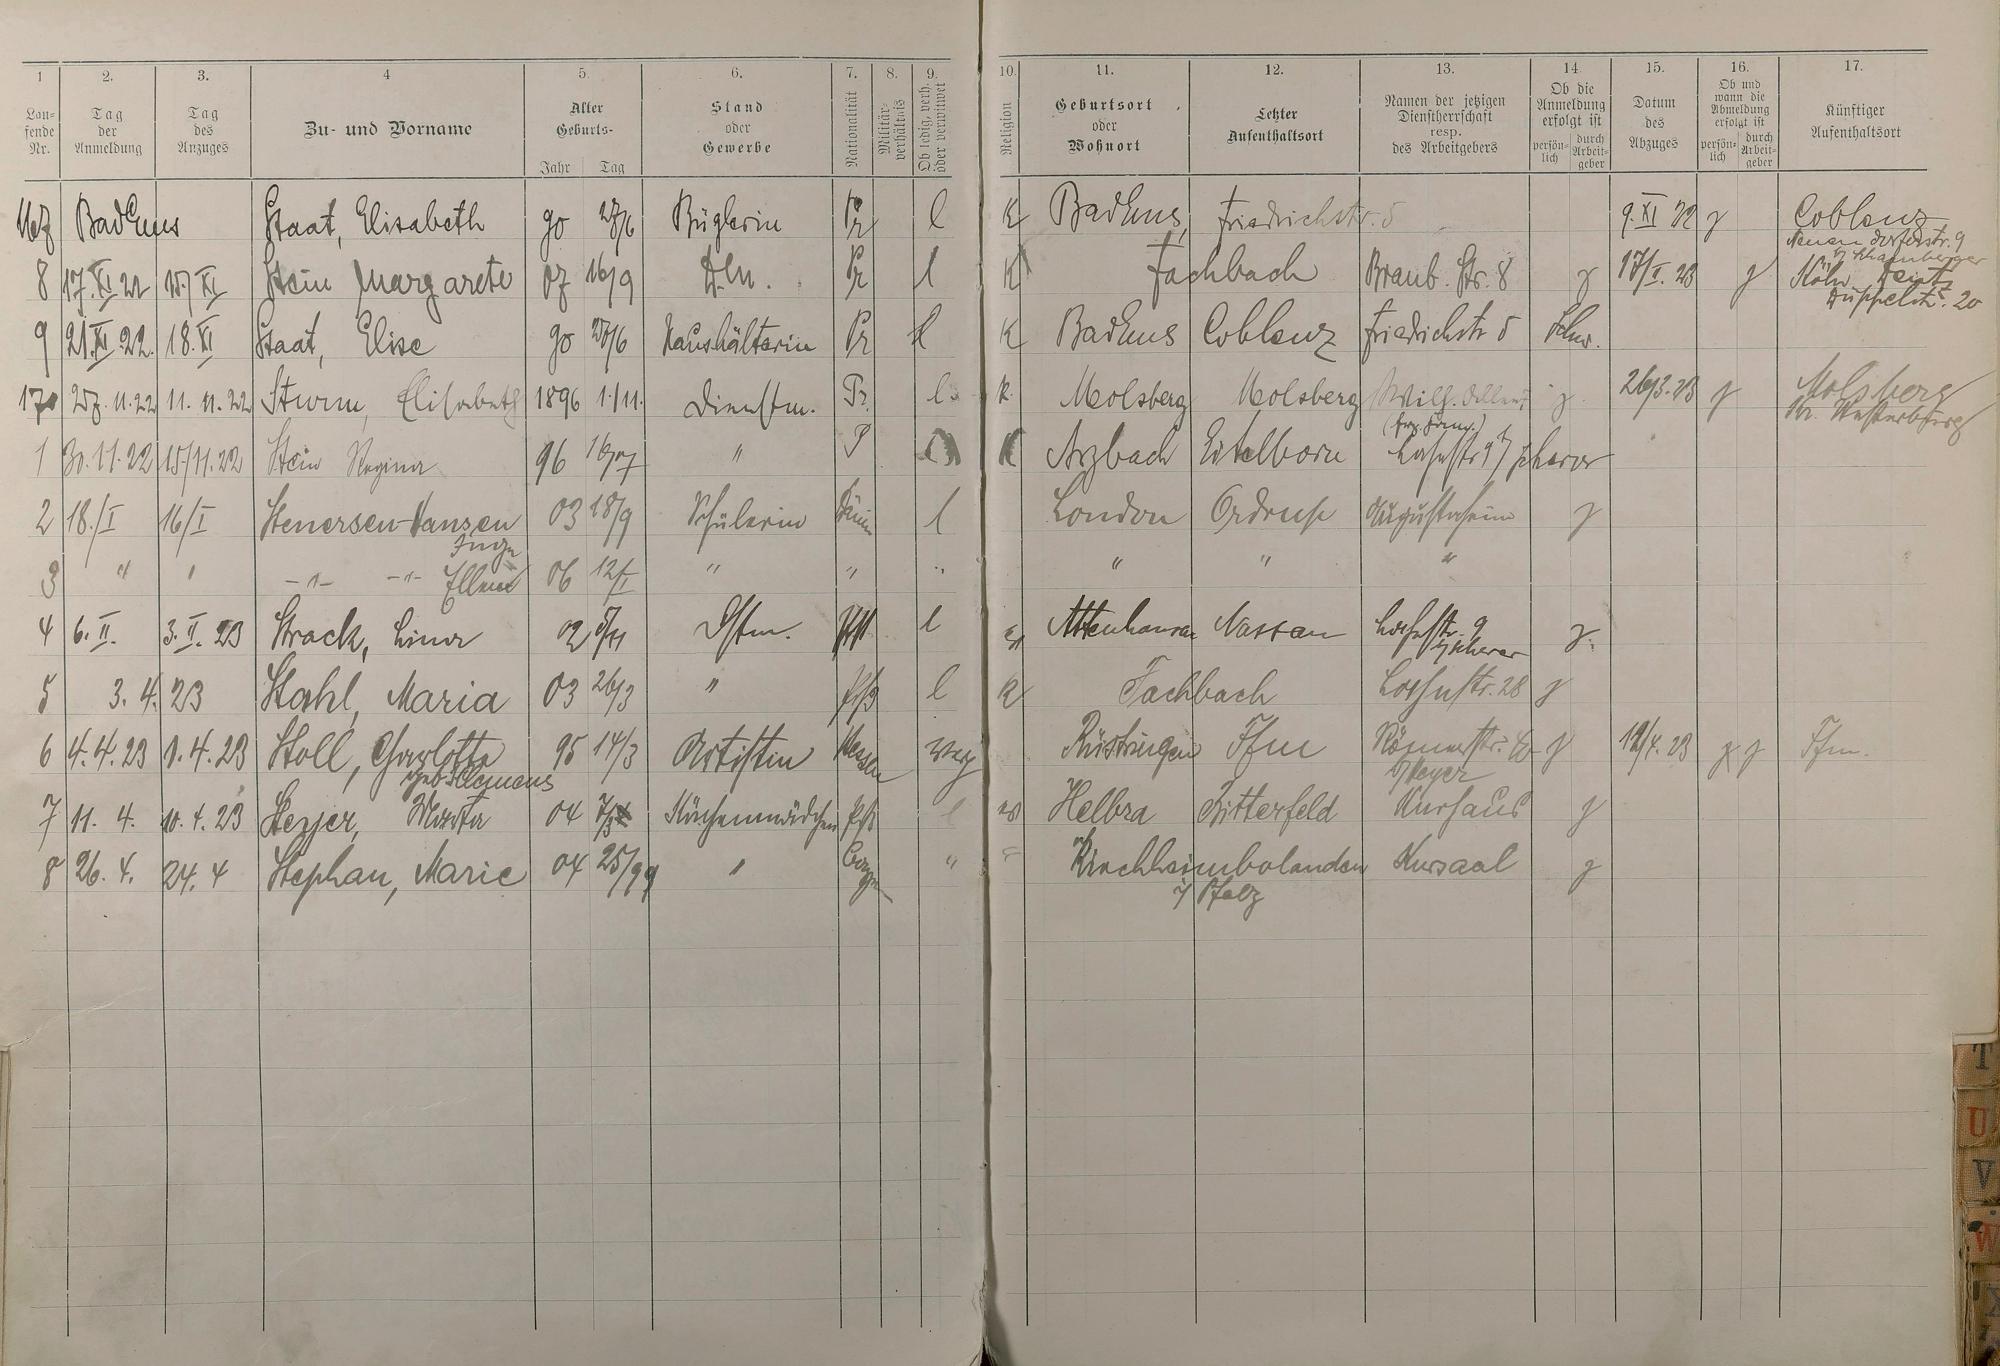 1 2. 3. 4 5. 6. 7. 8. 9. 10. 11. 12. 13. 14. 15. 16. 17.
Lau-fende Nr. Tag der Anmeldung Tag des Anzuges Zu- und Vorname Alter Geburts- Jahr Tag Stand oder Gewerbe Nationalität Militär-verhältnis Ob ledig, verh. oder verwitwet Religion Geburtsort oder Wohnort Letzter Aufenthaltsort Namen der jetzigen Dienstherrschaft resp. des Arbeitgebers Ob die Anmeldung erfolgt ist persön-lich durch Arbeit-geber Datum des Abzuges Ob und wann die Abmeldung erfolgt ist persön-lich durch Arbeit-geber Künftiger Aufenthaltsort
167 Bad Ems Staat, Elisabeth 90 27/6 Büglerin Pr l K Bad Ems, Friedrichstr. 5 9. XI 22 j Coblenz
9
8 17. XI 22 15/XI Stein Margarete 07 16/9 D.M. Pr l K Fachbach Braub. Str. 8 j 17/I. 23 j Köln Deutz
Düppelstr. 20
9 21. XI. 22. 18. XI Staat, Elise 90 27/6 Haushälterin Pr l K Bad Ems Coblenz Friedrichstr 5 Schw.
170 27. 11. 22 11. 11. 22 Sturm, Elisabeth 1896 1./11. Dienstm. Pr. l. k. Molsberg Molsberg Wilh. j. 26/3. 23 j Molsberg
Kr. Westerburg
1 30. 11. 22 15/11. 22 Stein Regina 96 " P K Arzbach Eitelborn
2 18./I 16/I Stenersen-Hansen 03 18/9 Schülerin l London Ordrup Augustaheim j
Inge
3 " " -"- -"- Ellen 06 12/I " " " " " "
4 6. II. 3. II. 23 Strack, Lina 02 Dstm. l Attenhausen Nassau j.
Scherer
5 3. 4. 23 Stahl, Maria 03 26/3 " l k Fachbach 28 j
6 4. 4. 23 1. 4. 23 Stoll, Charlotte 95 14/3 Artistin Hessen Rüstringen Ffm Römerstr. j 19/4. 23 j Ffm.
geb. Clemens b/Meyer
7 11. 4. 10. 4. 23 Steyer, Martha 04 Küchenmädchen l Helbra Bitterfeld Kurhaus j
8 26. 4. 24. 4 Stephan, Marie 04 25/ " " Kirchheimbolanden Kursaal j
i/ Pfalz
T
U
V
W
X